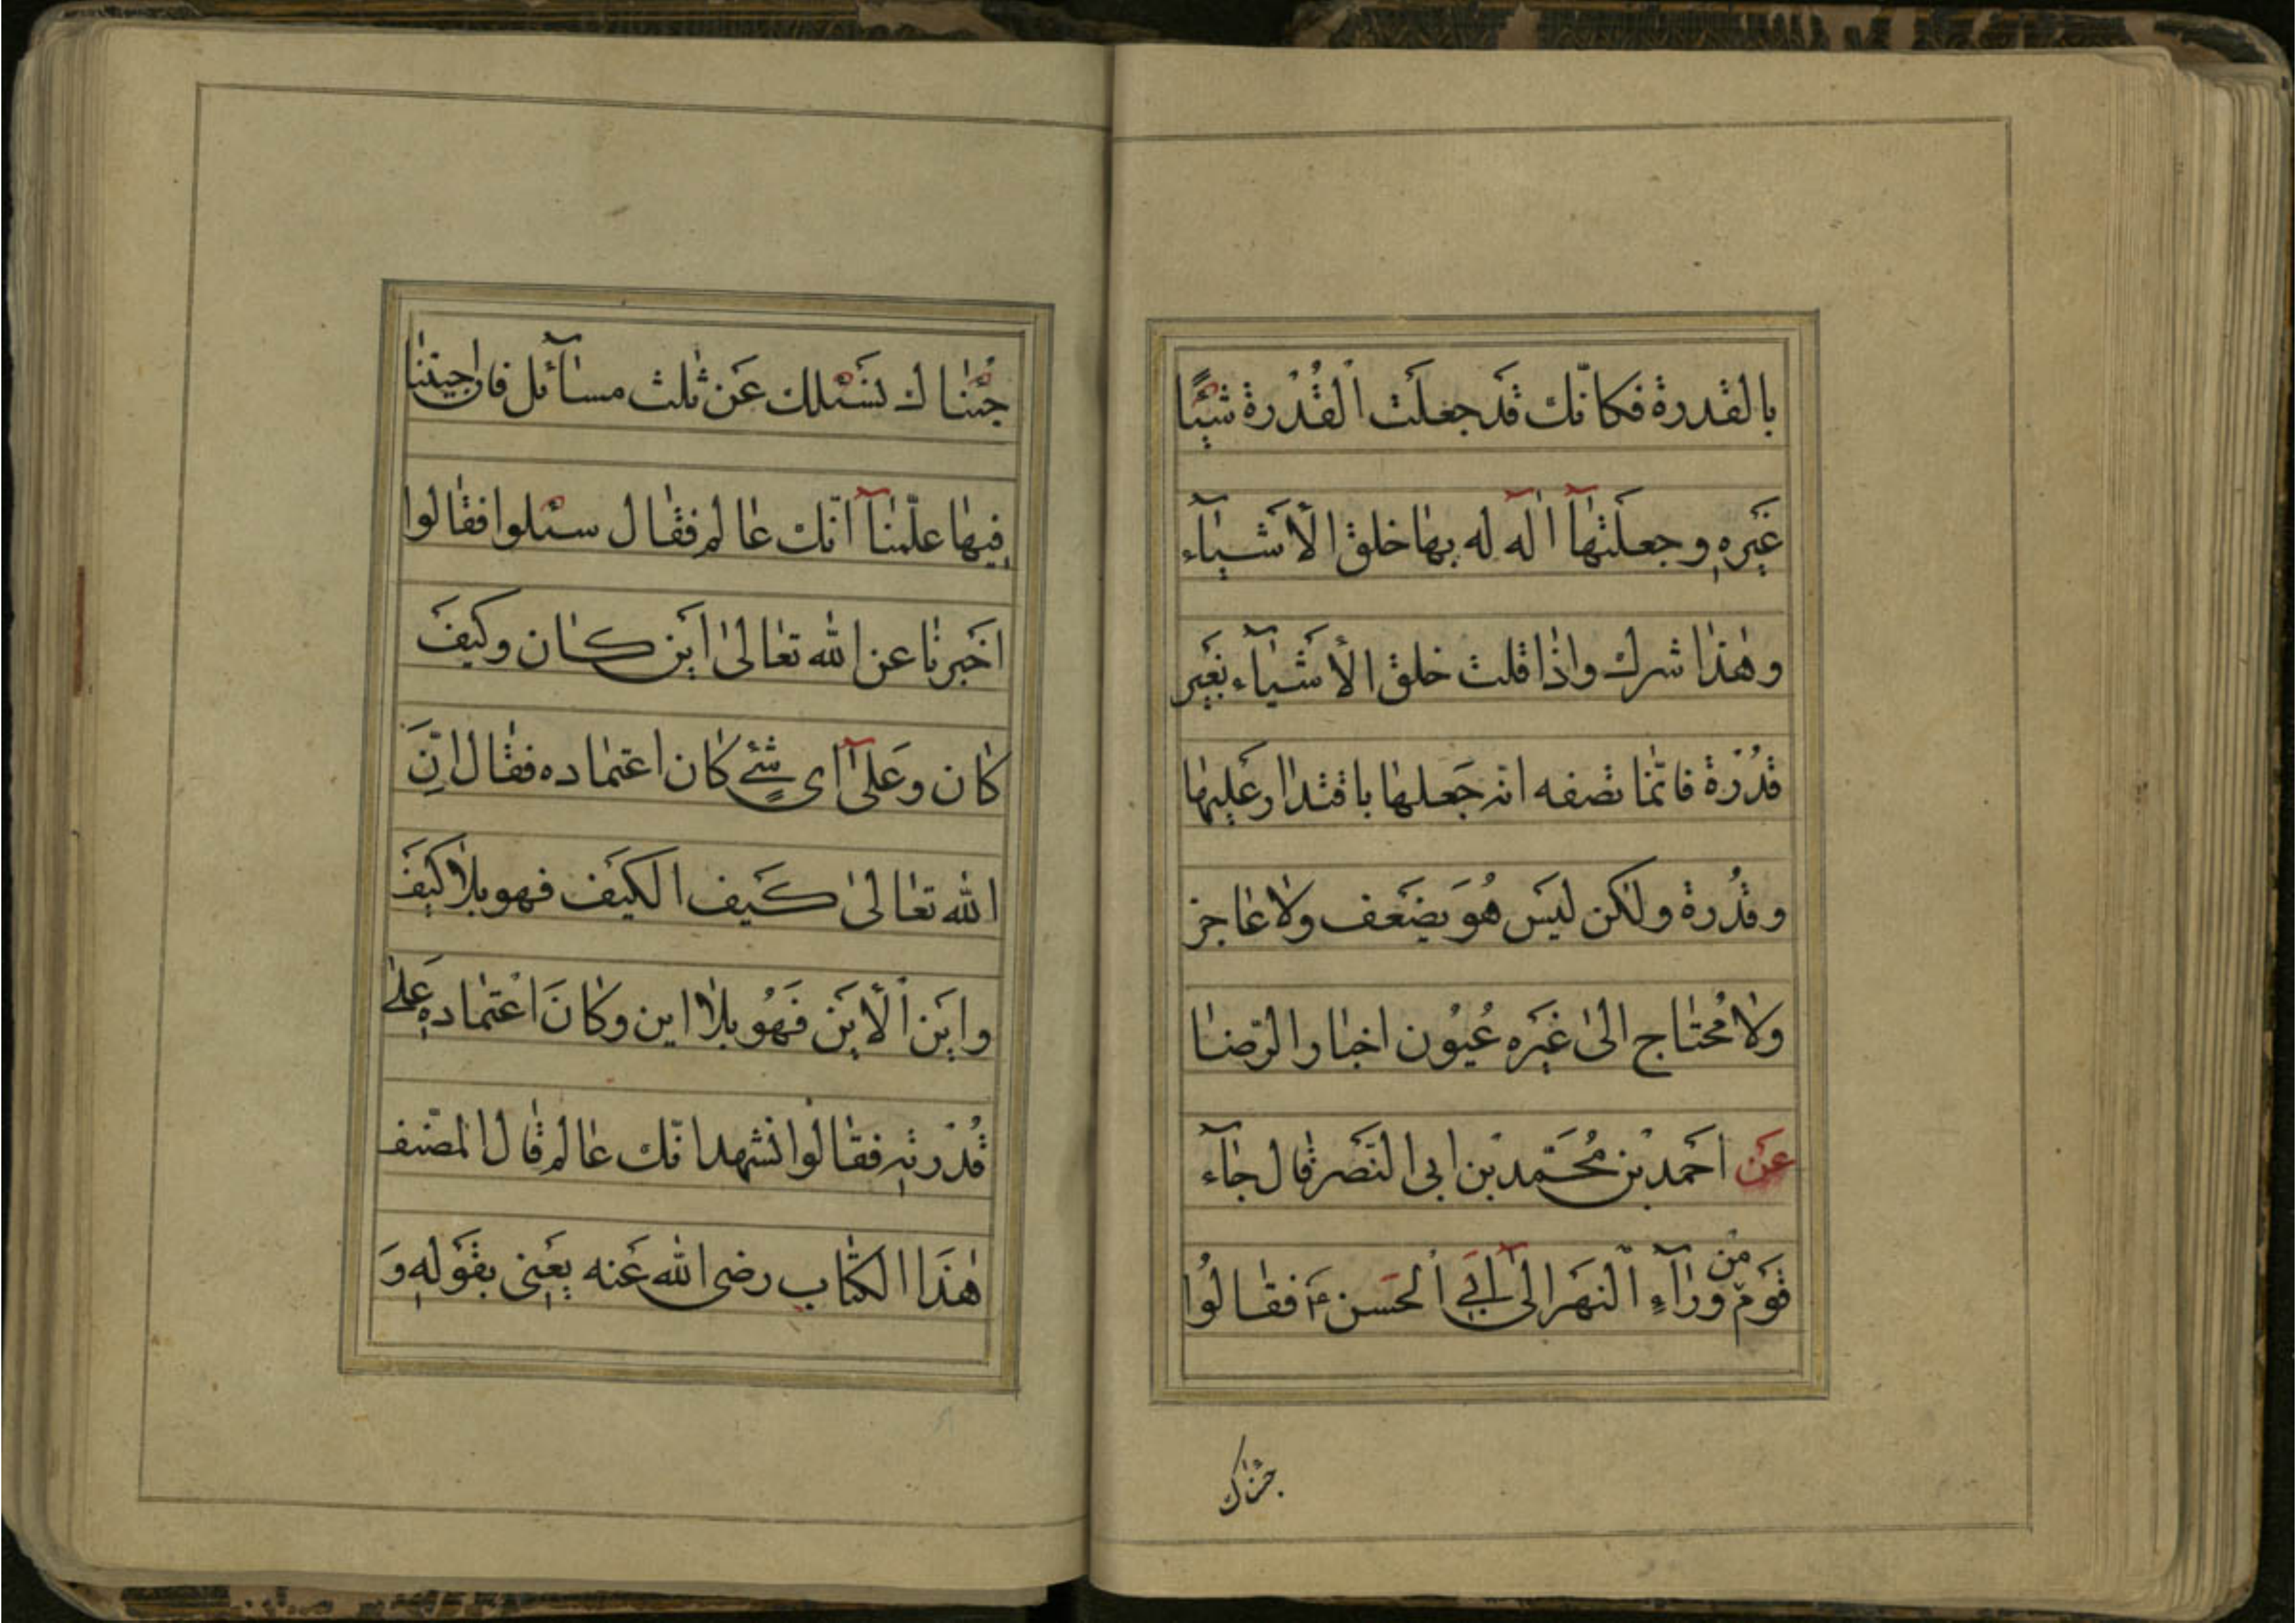 بالقدرة فكانّك قَد جعلَت اْلقُدْرة شَيْئًا
غَيره وجعلتهٰآ اٰلة له بهٰا خلق الأشيٰآء
وهٰذٰا شرك واذٰا قلت خلق الأشيٰآء بغَير
قُدْرَة فانّمٰا تصفه انّه جَعلهٰا باقتدٰار عَليهٰا
وقُدرة ولٰكن لَيس هُوَ بضَعف ولاٰ عٰاجز
ولاٰ مُحتٰاج الىٰ غَيره عُيوُن اخبٰار الرّضٰا
عَن احَمد بْن مُحَمّد بْن ابى النّصَر قٰال جٰآء
قَوم مّن ورٰآءِ اْلنّهَر الىٰٓ اَبِى اْلحَسن ع فقٰالُوا
جئنٰاك
جئْنٰاك نَسْئلك عَن ثلٰث مسٰآئل فان اجبتنٰا
فيهٰا علّمنٰآ انّك عٰالم فقٰال سئلوا فقٰالوا
اخَبرنٰا عن الله تعٰالىٰ اَين كٰان وكيَف
كٰان وعَلىٰٓ اى شئٍ كٰان اعتمٰاده فقٰال انّ
الله تعٰالىٰ كيَف الكيَف فهو بلاٰ كيَف
واَيَن اْلأيَن فَهُو بلاٰ اين وكٰانَ اعْتمٰاده عَلىٰ
قُدْرته فقٰالوُا نشهد انّك عٰالم قٰال المصّنف
هٰذَا الكتٰاب رضى الله عَنه يعَنى بقَوله وَ